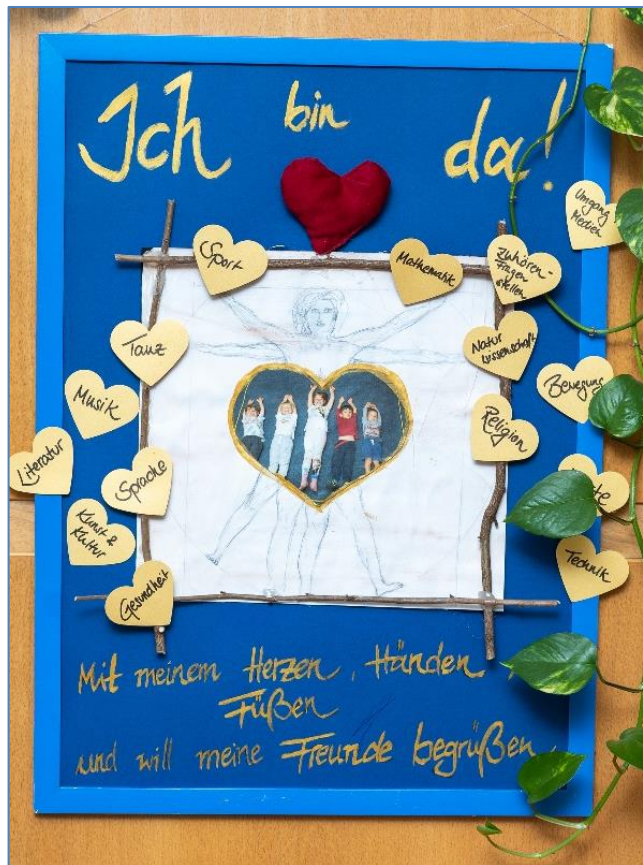 Ich bin da!
Umgang
Medien
Sport
Mathematik
Zuhören-
Fragen
stellen
Tanz
Natur
wissenschaft
Musik
Bewegung
Religion
Literatur
Sprache
Kunst &
Kultur
Technik
Gesundheit
Mit meinem Herzen, Händen,
Füßen
und will meine Freunde begrüßen.